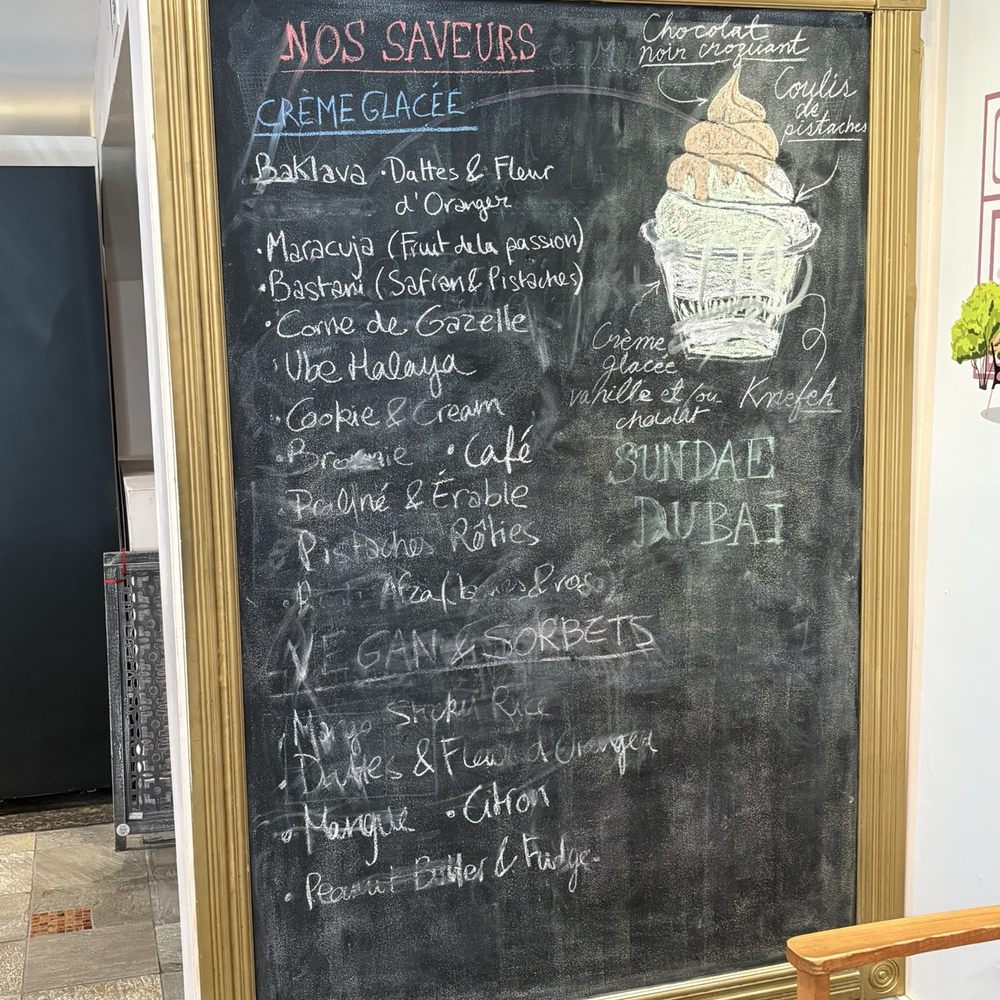 NOS SAVEURS
CRÈME GLACÉE
Baklava · Dattes & Fleur
d'Oranger
· Maracuja (Fruit de la passion)
· Bastani (Safran & Pistaches)
· Corne de Gazelle
· Ube Halaya
· Cookie & Cream
· Brownie · Café
Praliné & Érable
Pistaches Rôties
· Afza (
VEGAN & SORBETS
Mango Sticky Rice
· Dattes & Fleur d'Oranger
· Mangue · Citron
· Peanut Butter & Fudge
Chocolat
noir croquant
Coulis
de
pistaches
Crème
glacée
vanille et/ou
chocolat
Knefeh
SUNDAE
DUBAI